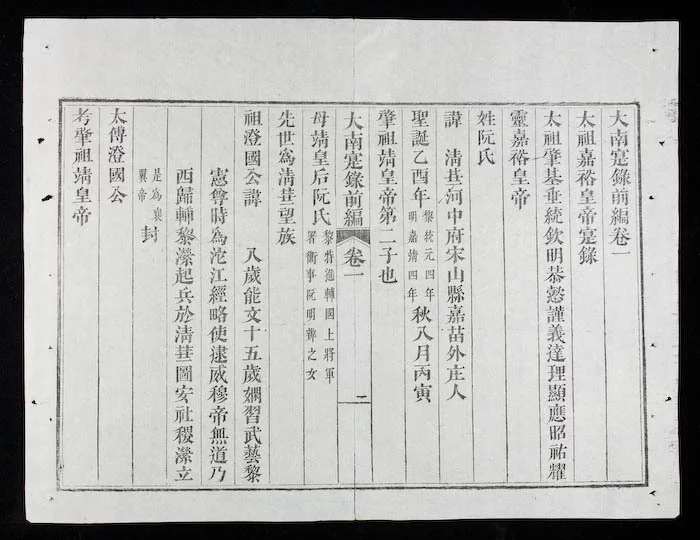 大南寔錄前編卷一
太祖嘉裕皇帝寔錄
太祖肇基垂統欽明恭懿謹義達理顯應昭祐耀
靈嘉裕皇帝
姓阮氏
諱 清華河中府宋山縣嘉苗外庄人
聖誕乙酉年黎統元四年明嘉靖四年秋八月丙寅
肇祖靖皇帝第二子也
大南寔錄前編 卷一 二
母靖皇后阮氏黎特進輔國上將軍署衛事阮明聲之女
先世爲清華望族
祖澄國公諱 八歲能文十五歲嫺習武藝黎
憲尊時爲沱江經略使逮威穆帝無道乃
西歸輔黎瀠起兵於清華圖安社稷瀠立
是爲襄翼帝封
太傅澄國公
考肇祖靖皇帝